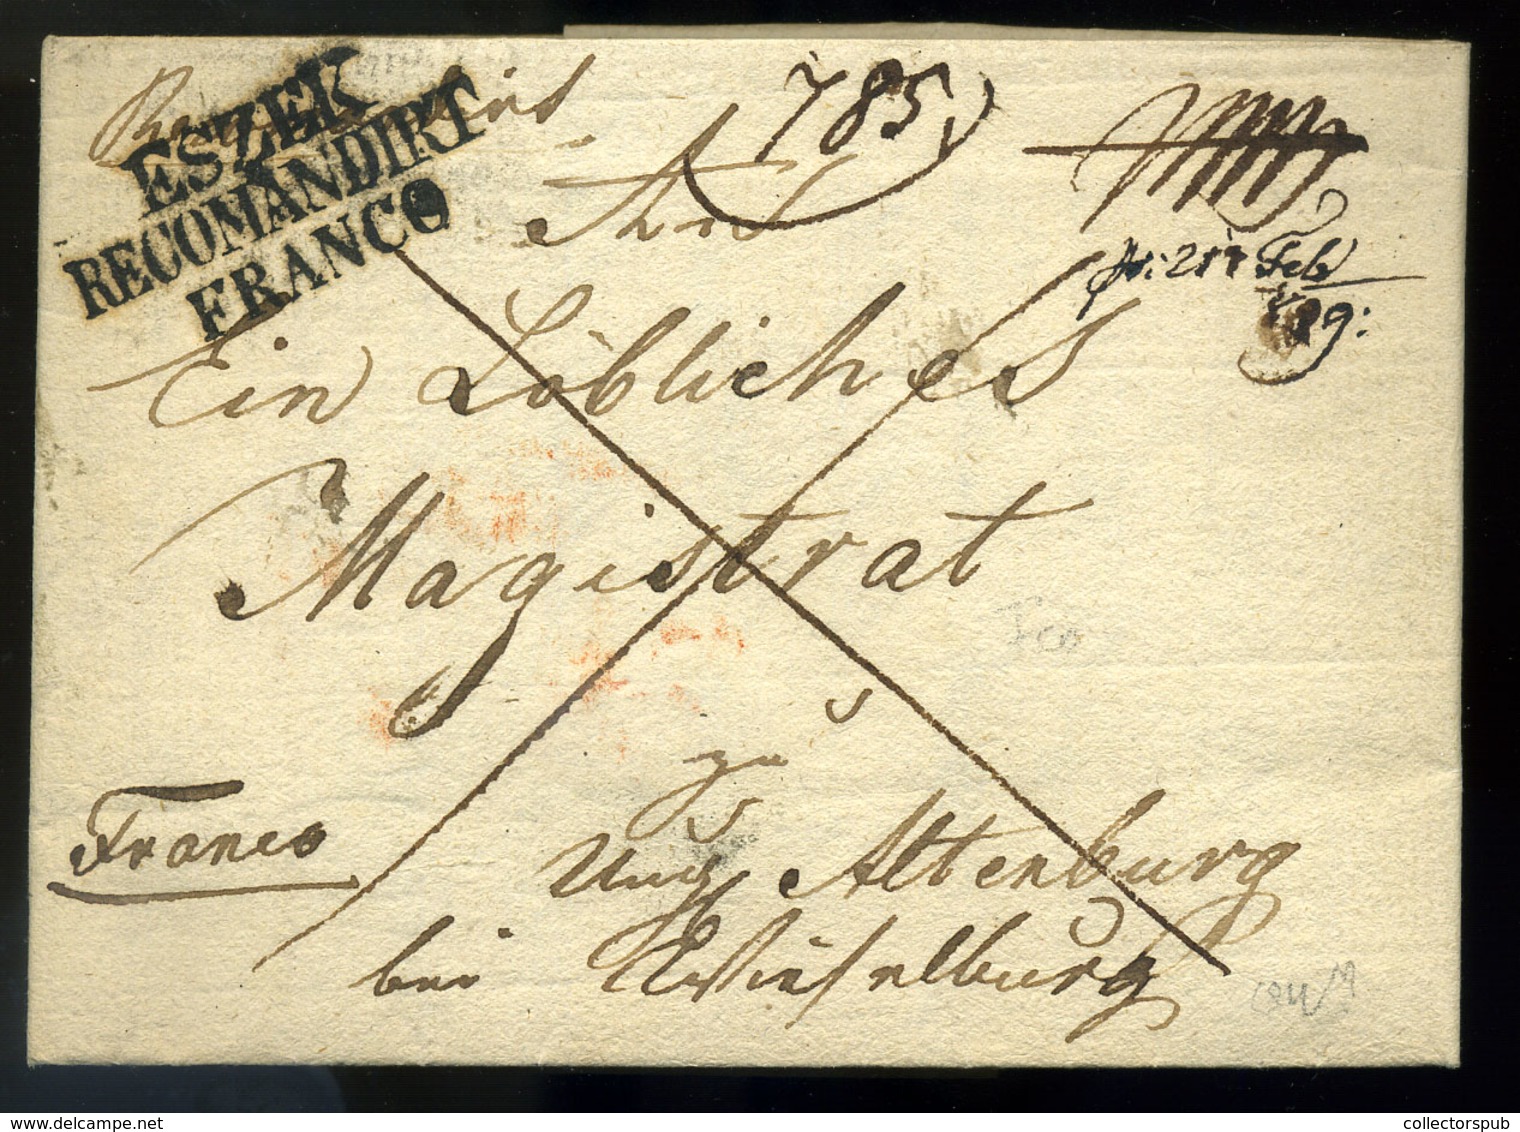 ESZEK
RECOMANDIRT
FRANCO
785
An
21t Feb
Ein Löbliches
Magistrat
zu
Ung Altenburg
bei Wieselburg
Franco
collectorspub